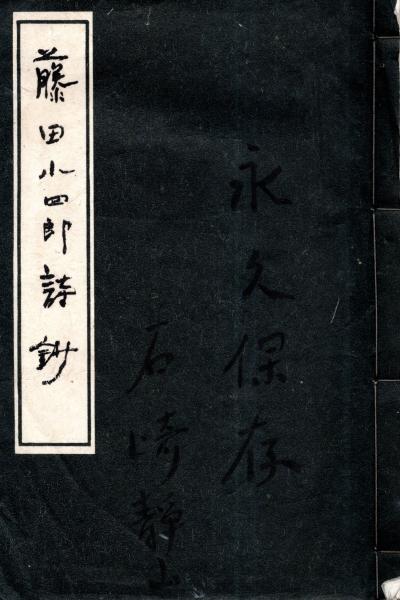 永久保存
石崎靜山
藤田小四郎詩鈔